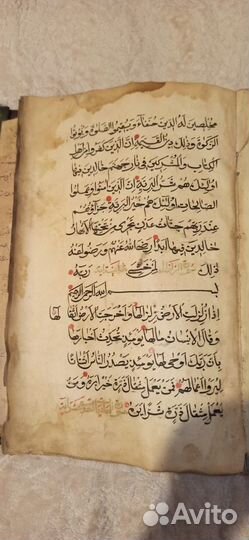 مخلصين له الدين حنفاء ويقيموا الصلوة ويؤتوا
الزكوة وذلك دين القيمة ان الذين كفروا من اهل
الكتاب والمشركين في نار جهنم خالدين فيها
اولئك هم شر البرية ان الذين امنوا وعملوا
الصالحات اولئك هم خير البرية جزاؤهم
عند ربهم جنات عدن تجري من تحتها الانهار
خالدين فيها ابدا رضي الله عنهم ورضوا عنه
ذلك لمن خشي ربه
بسم الله الرحمن الرحيم
اذا زلزلت الارض زلزالها واخرجت الارض اثقالها
وقال الانسان مالها يومئذ تحدث اخبارها
بان ربك اوحى لها يومئذ يصدر الناس اشتاتا
ليروا اعمالهم فمن يعمل مثقال ذرة خيرا يره ومن
يعمل مثقال ذرة شرا يره
Avito